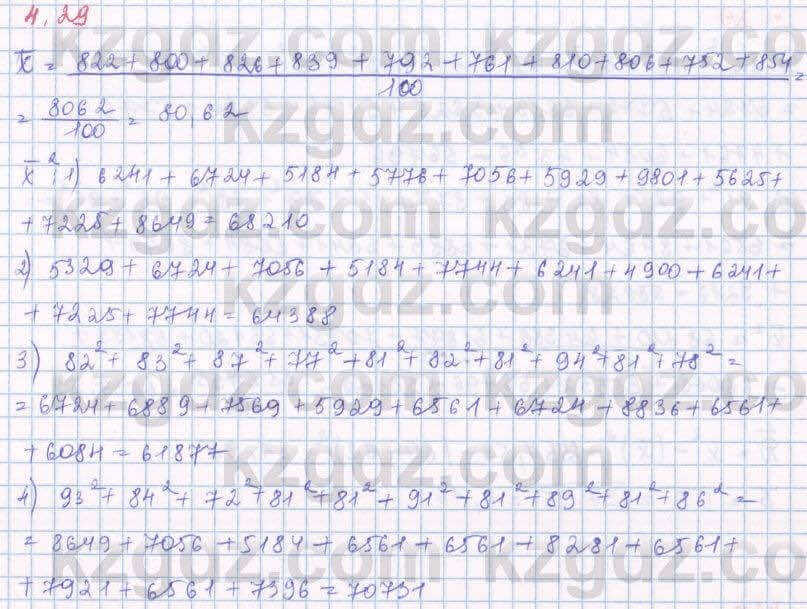 4.29
x̄ = (822 + 800 + 826 + 839 + 792 + 761 + 810 + 806 + 752 + 854) / 100 =
= 8062 / 100 = 80,62
x̄² 1) 6241 + 6724 + 5184 + 5776 + 7056 + 5929 + 9801 + 5625 +
+ 7225 + 8649 = 68210
2) 5329 + 6724 + 7056 + 5184 + 7744 + 6241 + 4900 + 6241 +
+ 7225 + 7744 = 64388
3) 82² + 83² + 87² + 77² + 81² + 82² + 81² + 94² + 81² + 78² =
= 6724 + 6889 + 7569 + 5929 + 6561 + 6724 + 8836 + 6561 +
+ 6084 = 61877
4) 93² + 84² + 72² + 81² + 81² + 91² + 81² + 89² + 81² + 86² =
= 8649 + 7056 + 5184 + 6561 + 6561 + 8281 + 6561 +
+ 7921 + 6561 + 7396 = 70731
kzgdz.com